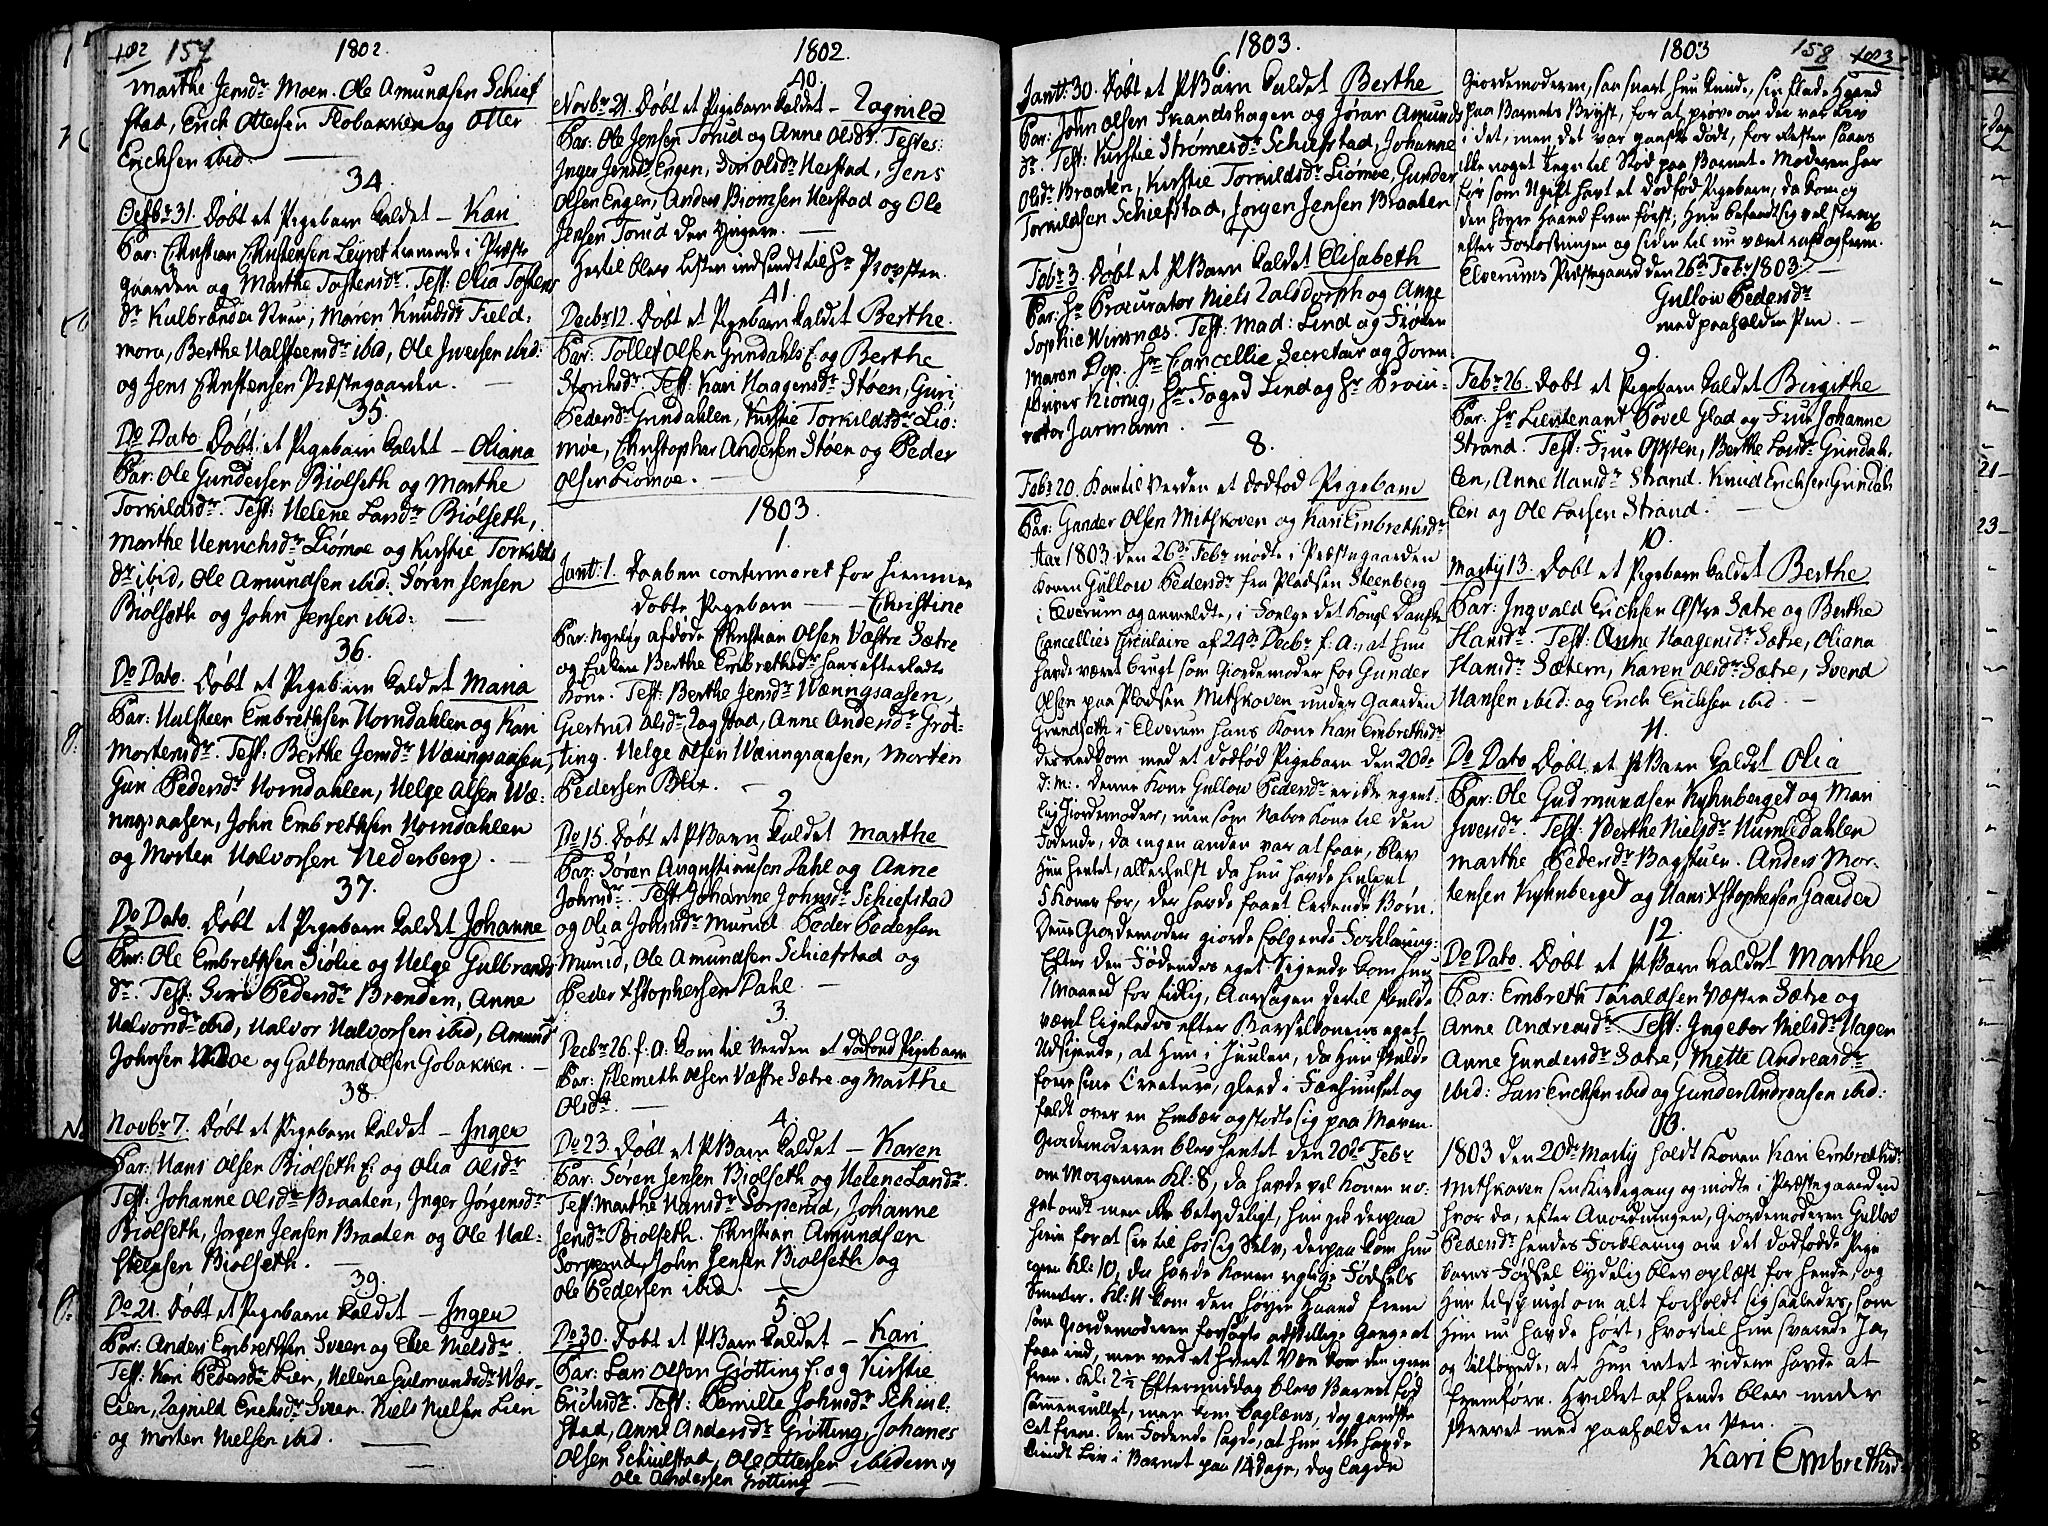 102 157 1802
Marthe Jensdr Moen. Ole Amundsen Schief
stad, Erich Ottersen Flobakken og Otter
Erichsen ibid.
34.
Octbr 31. Døbt et Pigebarn kaldet - Kari
Par: Christian Christensen Løyret tienende i Præste
gaarden og Marthe Tostensdr. Test: Olia Tostens
dr Kulbrånden Kuer, Maren Knudsdr Field-
mora, Berthe Halsteensdr ibid, Ole Iversen ibid:
og Jens Christensen Præstegaarden.
35.
Do Dato. Døbt et Pigebarn kaldet - Oliana
Par: Ole Gundersen Biølseth og Marthe
Torkildsdr. Test: Helene Larsdr Biølseth,
Marthe Henrichsdr Liømoe og Kirstie Torkilds
dr ibid, Ole Amundsen ibid: Søren Jensen
Biølseth og John Jensen ibid:
36.
Do Dato. Døbt et Pigebarn kaldet Maria
Par: Halsteen Embrethsen Horndahlen og Kari
Mortensdr. Test: Berthe Jensdr Wæringsaasen,
Guri Pedersdr Horndahlen, Helge Olsen Wæ-
ringsaasen, John Embrethsen Horndahlen
og Morten Halvorsen Nederberg.
37.
Do Dato. Døbt et Pigebarn kaldet Johanne
Par: Ole Embrethsen Siølie og Helge Gulbrands
dr. Test: Siri Pedersdr Brenden, Anne
Halvorsdr ibid, Halvor Halvorsen ibid, Amund
Johnsen Moe og Gulbrand Olsen Gobakken.
38.
Novbr 7. Døbt et Pigebarn kaldet - Inger
Par: Hans Olsen Biølseth E: og Olia Olsdr
Test: Johanne Olsdr Braaten, Inger Jørgensdr
Biølseth, Jørgen Jensen Braaten og Ole Hal-
steensen Biølseth.
39.
Do 21. Døbt et Pigebarn kaldet - Inger
Par: Anders Embrethsen Sveen og Else Nielsdr.
Test: Kari Pedersdr Lien, Helene Gulmundsdr Vær-
Lien, Ragnild Erichsdr Sveen. Niels Nielsen Lien
og Morten Nielsen ibid.
1802.
40.
Novbr 21. Døbt et Pigebarn kaldet - Ragnild
Par. Ole Jensen Torud og Anne Olsdr. Testes:
Inger Jensdr Engen, Siri Olsdr Herstad, Jens
Olsen Engen, Anders Biørnsen Herstad og Ole
Jensen Torud den yngere.
Hertil blev Listen indsendt til Hr Provsten.
41.
Decbr 12. Døbt et Pigebarn kaldet Berthe.
Par: Tollef Olsen Grindahls E: og Berthe
Storchsdr. Test: Kari Haagensdr Støen, Guri
Pedersdr Grindahlen, Kirstie Torkildsdr Liø-
møe, Christopher Andersen Støen og Peder
Olsen Liømoe.
1803.
1
Janv: 1. Daaben confirmeret for hiemme
døbte Pigebarn - Christine
Par: Nyelig afdøde Christian Olsen Væstre Sætre
og Enken Berthe Embrethsdr hans efterladte
Kone. Test: Berthe Jensdr Wæringsaasen,
Giertrud Olsdr Rogstad, Anne Andersdr Grøt-
ting. Helge Olsen Wæringsaasen, Morten
Pedersen Blix.
2.
Do 15. Døbt et P Barn kaldet Marthe
Par: Søren Augustinusen Dahl og Anne
Johnsdr. Test: Johanne Johnsdr Schiefstad
og Olia Johnsdr Murud. Peder Pedersen
Murud, Ole Amundsen Schiefstad og
Peder Xstophersen Dahl.
3.
Decbr 26. f: a: kom til Verden et dødfød Pigebarn
Par: Elemeth Olsen Væstre Sætre og Marthe
Olsdr.
4.
Do 23. Døbt et P Barn kaldet - Karen
Par: Søren Jensen Biølseth og Helene Larsdr.
Test: Marthe Hansdr Sorperud, Johanne
Jensdr Biølseth. Christian Amundsen
Sorperud, John Jensen Biølseth og
Ole Pedersen ibid.
5.
Do 30. Døbt et P Barn kaldet - Kari
Par: Lars Olsen Grøtting E: og Kirstie
Erichsdr. Test: Pernille Johnsdr Schiul-
stad, Anne Andersdr Grøtting, Johanes
Olsen Schiulstad, Ole Ottersen ibidem og
Ole Andersen Grøtting
1803.
6
Janv: 30. Døbt et P Barn kaldet Berthe
Par: John Olsen Strandshagen og Jøran Amunds
dr. Test: Kirstie Strømersdr Schiefstad, Johanne
Olsdr Braaten, Kirstie Torkildsdr Liømoe, Gunder
Torkildsen Schiefstad, Jørgen Jensen Braaten
7
Febr 3. Døbt et P Barn kaldet Elisabeth
Par: Hr Procurator Niels Ralsdorph og Anne
Sophie Wirrnæs. Test: Mad: Lind og Frøken
Maren Dop. Hr Cancellie Secretair og Soren-
skriver Kiønig, Hr Foged Lind og Hr Procu-
rator Jarmann.
8.
Febr 20. kom til Verden et dødfød Pigebarn
Par: Gunder Olsen Mitskoven og Kari Embrethsdr
Aar 1803 den 26de Febr mødte i Præstegaarden
Konen Gullow Pedersdr fra Pladsen Steenberg
i Elverum og anmeldte, i Følge det Kongl Danske
Cancellies Circulaire af 24de Decbr f. a:, at hun
havde været brugt som Giordemoder for Gunder
Olsen paa Pladsen Mitskoven under Gaarden
Grindseth i Elverum hans Kone Kari Embrethsdr
der nedkom med et dødfød Pigebarn den 20de
d: m:. Denne Kone Gullow Pedersdr er ikke egent-
lig Giordemoder, men som Nabo Kone til den
Fødende, da ingen anden var at faae, blev
hun hentet, allerhelst da hun havde hiulpet
5 Koner før, der havde faaet levende Børn.
Denne Giordemoder giorde følgende Forklaring:
Efter den Fødendes eget Sigende kom hun
1 Maaned for tidlig, Aarsagen dertil skulde
været ligeledes efter Barselkonens eget
Udsigende, at hun i Juulen, da hun skulde
fore sine Creature, gleed i Fæehuuset og
faldt over en Embær og stødte sig paa Maven.
Giordemoderen blev hentet den 20de Febr
om Morgenen Kl: 8, da havde vel Konen no-
get ondt men ikke betydeligt, hun gik derpaa
hiem for at see til hos sig selv, derpaa kom hun
igien Kl: 10, da havde Konen rigtige Fødsels
Smerter. Kl: 11 kom den høyre Haand frem
som Giordemoderen forsøgte adskillige Gange at
faae ind, men ved et hvert Væe kom den igien
frem. Kl: 2½ Eftermiddag blev Barnet fød
sammenrullet, men kom baglæns, dog gandske
let frem. Den Fødende sagde, at hun ikke havde
kiendt Liv i Barnet paa 14 Dage, dog lagde
1803 158 1803
Giordemoderen, saa snart hun kunde, sin flade Haand
paa Barnets Bryst, for at prøve om der var Liv
i det, men det var ganske dødt, for Resten saaes
ikke noget Tegn til Stød paa Barnet. Moderen har
før som Ugift havt et dødfød Pigebarn, da kom og
den høyre Haand frem først; Hun befandt sig vel strax
efter Forløsningen og siden til nu været rask og frem.
Elverums Præstegaard den 26de Febr 1803
Gullow Pedersdr
med paaholden Pen.
9.
Febr 26. Døbt et Pigebarn kaldet Birgithe
Par. Hr Lieutenant Povel Glad og Frue Johanne
Strand. Test: Frue Opsten, Berthe Larsdr Grindah-
len, Anne Hansdr Strand. Knud Erichsen Grindah
len og Ole Larsen Strand.
10.
Martÿ 13. Døbt et Pigebarn kaldet Berthe
Par: Ingvald Erichsen Østre Sætre og Berthe
Hansdr. Test: Anne Haagensdr Sætre, Oliana
Hansdr Sætern, Karen Olsdr Sætre, Svend
Hansen ibid: og Erich Erichsen ibid.
11.
Do Dato Døbt et P Barn kaldet Olia
Par: Ole Gudmundsen Kynberget og Mari
Iversdr. Test: Berthe Nielsdr Humledahlen
Marthe Pedersdr Bagstuen. Anders Mor-
tensen Kyhnberget og Hans Xstophersen Gaarder
12.
Do Dato. Døbt et P Barn kaldet Marthe
Par: Embreth Taraldsen Væstre Sætre og
Anne Andreasdr. Test: Ingebor Nielsdr Hagen
Anne Gundersdr Sætre, Mette Andreasdr
ibid: Lars Erichsen ibid og Gunder Andreasen ibid:
13.
1803 den 20de Martÿ holdt Konen Kari Embrethsdr
Mitskoven sin Kirkegang og mødte i Præstegaarden
hvor da, efter Anordningen, Giordemoderen Gullov
Pedersdr hendes Forklaring om det dødfødde Pige
barns Fødsel tydelig blev oplæst for hende, og
hun tilspurgt om alt forholdt sig saaledes, som
hun nu havde hørt, hvortil hun svarede Ja,
og tilføyede, at hun intet videre havde at
fremføre. Hvilket af hende blev under
skrevet med paaholden Pen.
Kari Embrethsd